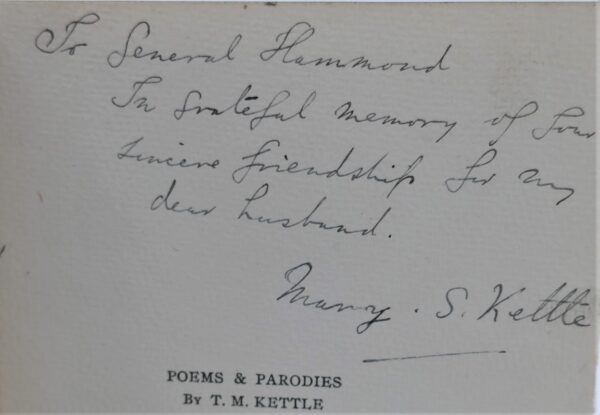 To General Hammond
In grateful memory of your
sincere friendship for my
dear husband.
Mary. S. Kettle
POEMS & PARODIES
By T. M. KETTLE